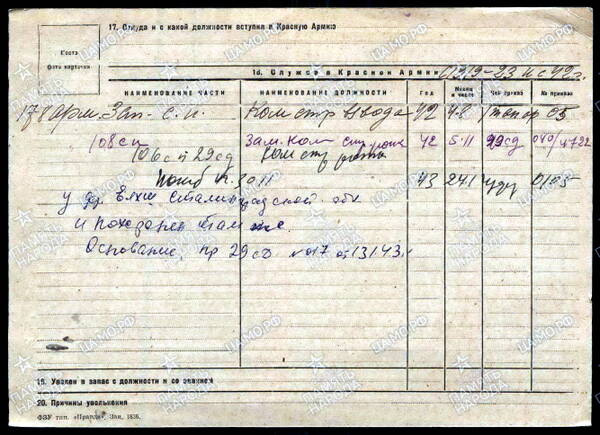 17. Откуда и с какой должности вступил в Красную Армию
Место
фото карточки
18. Служба в Красной Армии с 1919-23 и с 42 г.
НАИМЕНОВАНИЕ ЧАСТИ НАИМЕНОВАНИЕ ДОЛЖНОСТИ ГОД Месяц и число Чей приказ № приказа
178 арм. Зап. с. п. Ком стр взвода 42 4.8 05
108 сп Зам. Ком стр роты 42 5.11 29 сд 040/4722
106 сп 29 сд Ком стр роты
Погиб 43 24.1 0105
у Сталинградской обл
и похоронен там же.
Основание: пр 29 сд №017 от 13.1.43 г.
19. Уволен в запас с должности и со званием
20. Причины увольнения
ФЗУ тип. «Правда», Зак. 1836.
ЦАМО.РФ
ПАМЯТЬ НАРОДА